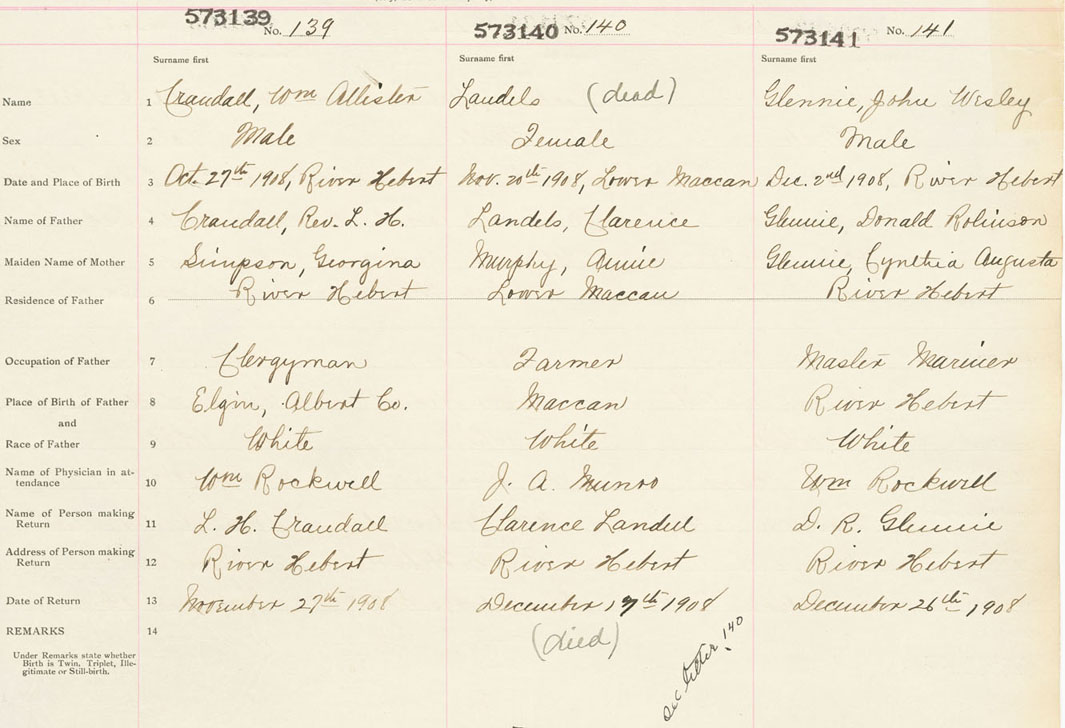 573139 No. 139 573140 No. 140 573141 No. 141
Surname first Surname first Surname first
Name 1 Crandall, Wm Allister Landels (dead) Glennie, John Wesley
Sex 2 Male Female Male
Date and Place of Birth 3 Oct. 27th 1908, River Hebert Nov. 20th 1908, Lower Maccan Dec. 2nd 1908, River Hebert
Name of Father 4 Crandall, Rev. L. H. Landels, Clarence Glennie, Donald Robinson
Maiden Name of Mother 5 Simpson, Georgina Murphy, Annie Glennie, Cynthia Augusta
Residence of Father 6 River Hebert Lower Maccan River Hebert
Occupation of Father 7 Clergyman Farmer Master Mariner
Place of Birth of Father 8 Elgin, Albert Co. Maccan River Hebert
and
Race of Father 9 White White White
Name of Physician in at-
tendance 10 Wm Rockwell J. A. Munro Wm Rockwell
Name of Person making
Return 11 L. H. Crandall Clarence Landel D. R. Glennie
Address of Person making
Return 12 River Hebert River Hebert River Hebert
Date of Return 13 November 27th 1908 December 17th 1908 December 26th, 1908
REMARKS 14 (died)
Under Remarks state whether
Birth is Twin, Triplet, Ille-
gitimate or Still-birth.
See letter 140